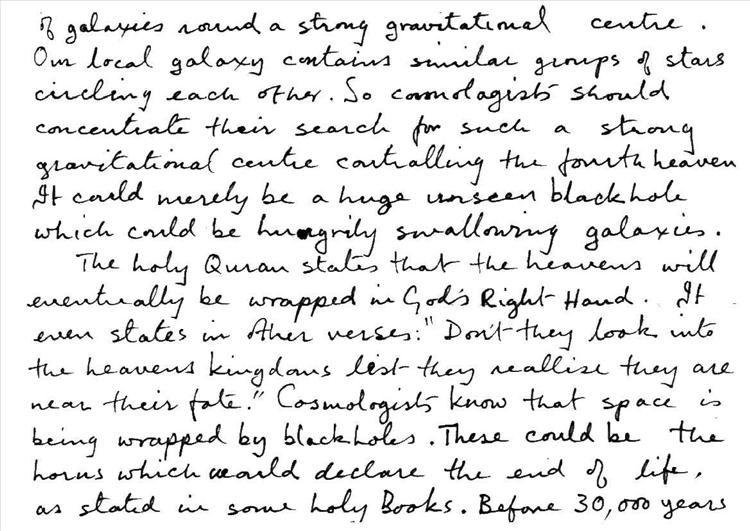 of galaxies round a strong gravitational centre.
Our local galaxy contains similar groups of stars
circling each other. So cosmologists should
concentrate their search for such a strong
gravitational centre controlling the fourth heaven
It could merely be a huge unseen blackhole
which could be hungrily swallowing galaxies.
The holy Quran states that the heavens will
eventually be wrapped in God's Right Hand. It
even states in other verses: "Don't they look into
the heavens kingdoms lest they reallise they are
near their fate." Cosmologists know that space is
being wrapped by blackholes. These could be the
horns which would declare the end of life,
as stated in some holy Books. Before 30,000 years